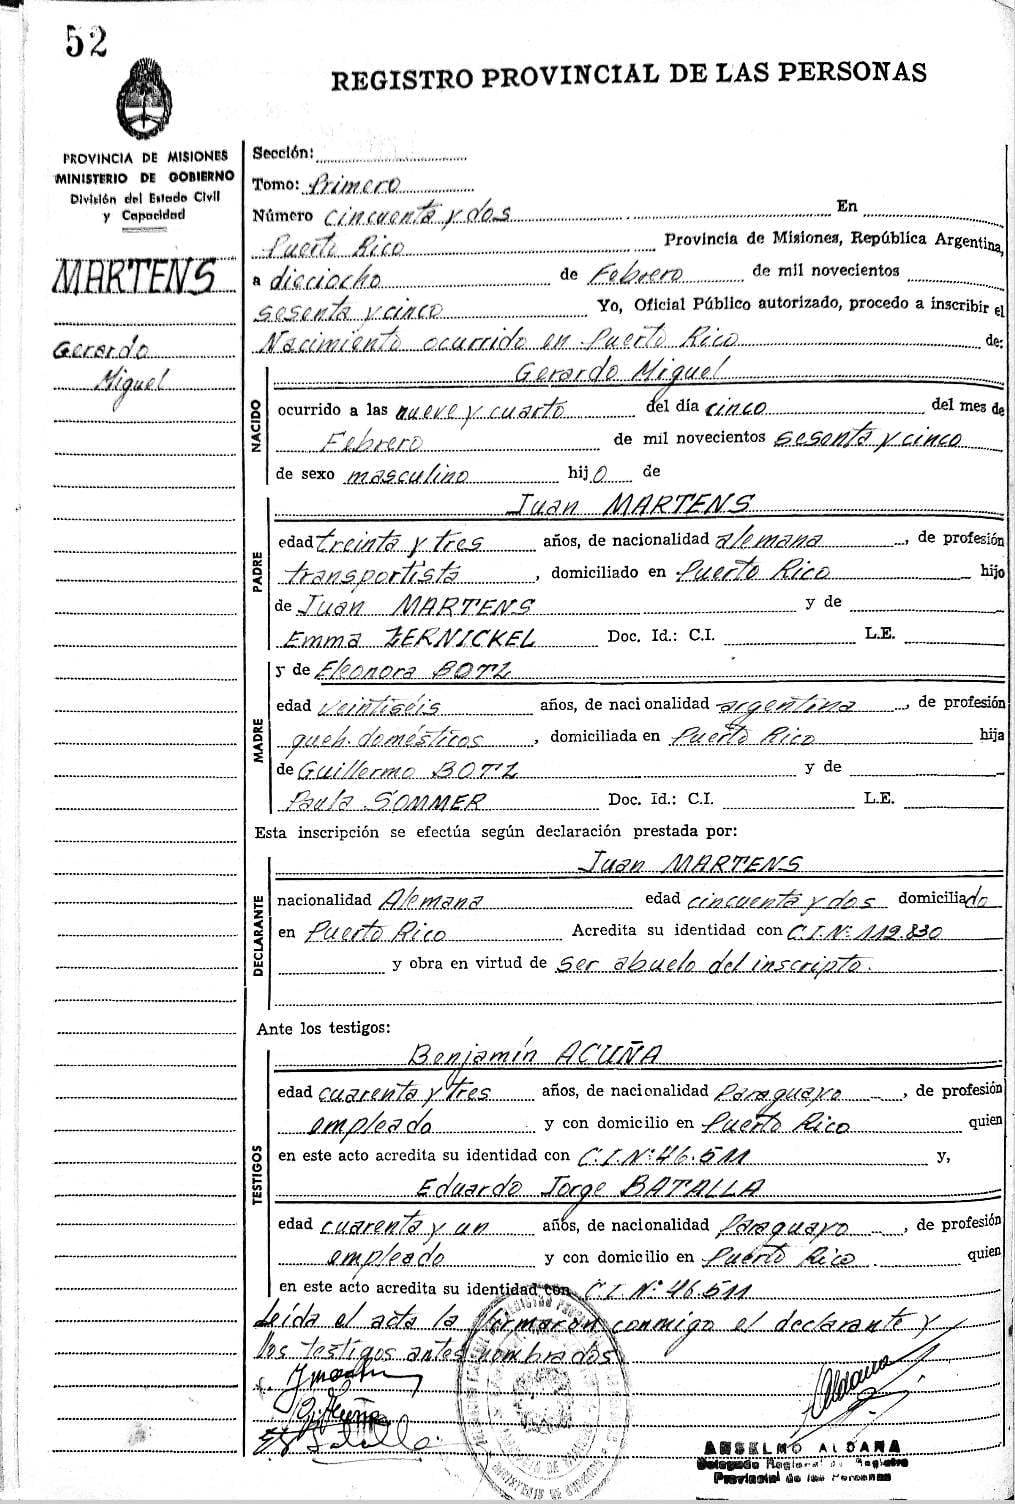 52
REGISTRO PROVINCIAL DE LAS PERSONAS
PROVINCIA DE MISIONES
MINISTERIO DE GOBIERNO
División del Estado Civil
y Capacidad
MARTENS
Gerardo
Miguel
Sección:
Tomo: Primero
Número cincuenta y dos En
Puerto Rico Provincia de Misiones, República Argentina,
a dieciocho de Febrero de mil novecientos
sesenta y cinco Yo, Oficial Público autorizado, procedo a inscribir el
Nacimiento ocurrido en Puerto Rico de:
NACIDO
Gerardo Miguel
ocurrido a las nueve y cuarto del día cinco del mes de
Febrero de mil novecientos sesenta y cinco
de sexo masculino hijo de
PADRE
Juan MARTENS
edad treinta y tres años, de nacionalidad alemana, de profesión
transportista, domiciliado en Puerto Rico hijo
de Juan MARTENS y de
Emma ZERNICKEL Doc. Id.: C.I. L.E.
MADRE
y de Eleonora BOTZ
edad veintiséis años, de nacionalidad argentina, de profesión
queh. domésticos, domiciliada en Puerto Rico hija
de Guillermo BOTZ y de
Paula SOMMER Doc. Id.: C.I. L.E.
Esta inscripción se efectúa según declaración prestada por:
DECLARANTE
Juan MARTENS
nacionalidad Alemana edad cincuenta y dos domiciliado
en Puerto Rico Acredita su identidad con C.I.Nº 112.830
y obra en virtud de ser abuelo del inscripto.
Ante los testigos:
TESTIGOS
Benjamín ACUÑA
edad cuarenta y tres años, de nacionalidad Paraguayo, de profesión
empleado y con domicilio en Puerto Rico quien
en este acto acredita su identidad con C.I.Nº 46.511 y,
Eduardo Jorge BATALLA
edad cuarenta y un años, de nacionalidad Paraguayo, de profesión
empleado y con domicilio en Puerto Rico quien
en este acto acredita su identidad con C.I.Nº 46.511
Leída el acta la firmarán conmigo el declarante y
los testigos antes nombrados.
Aldana
ANSELMO ALDANA
Delegado Regional de Registro
Provincial de las Personas